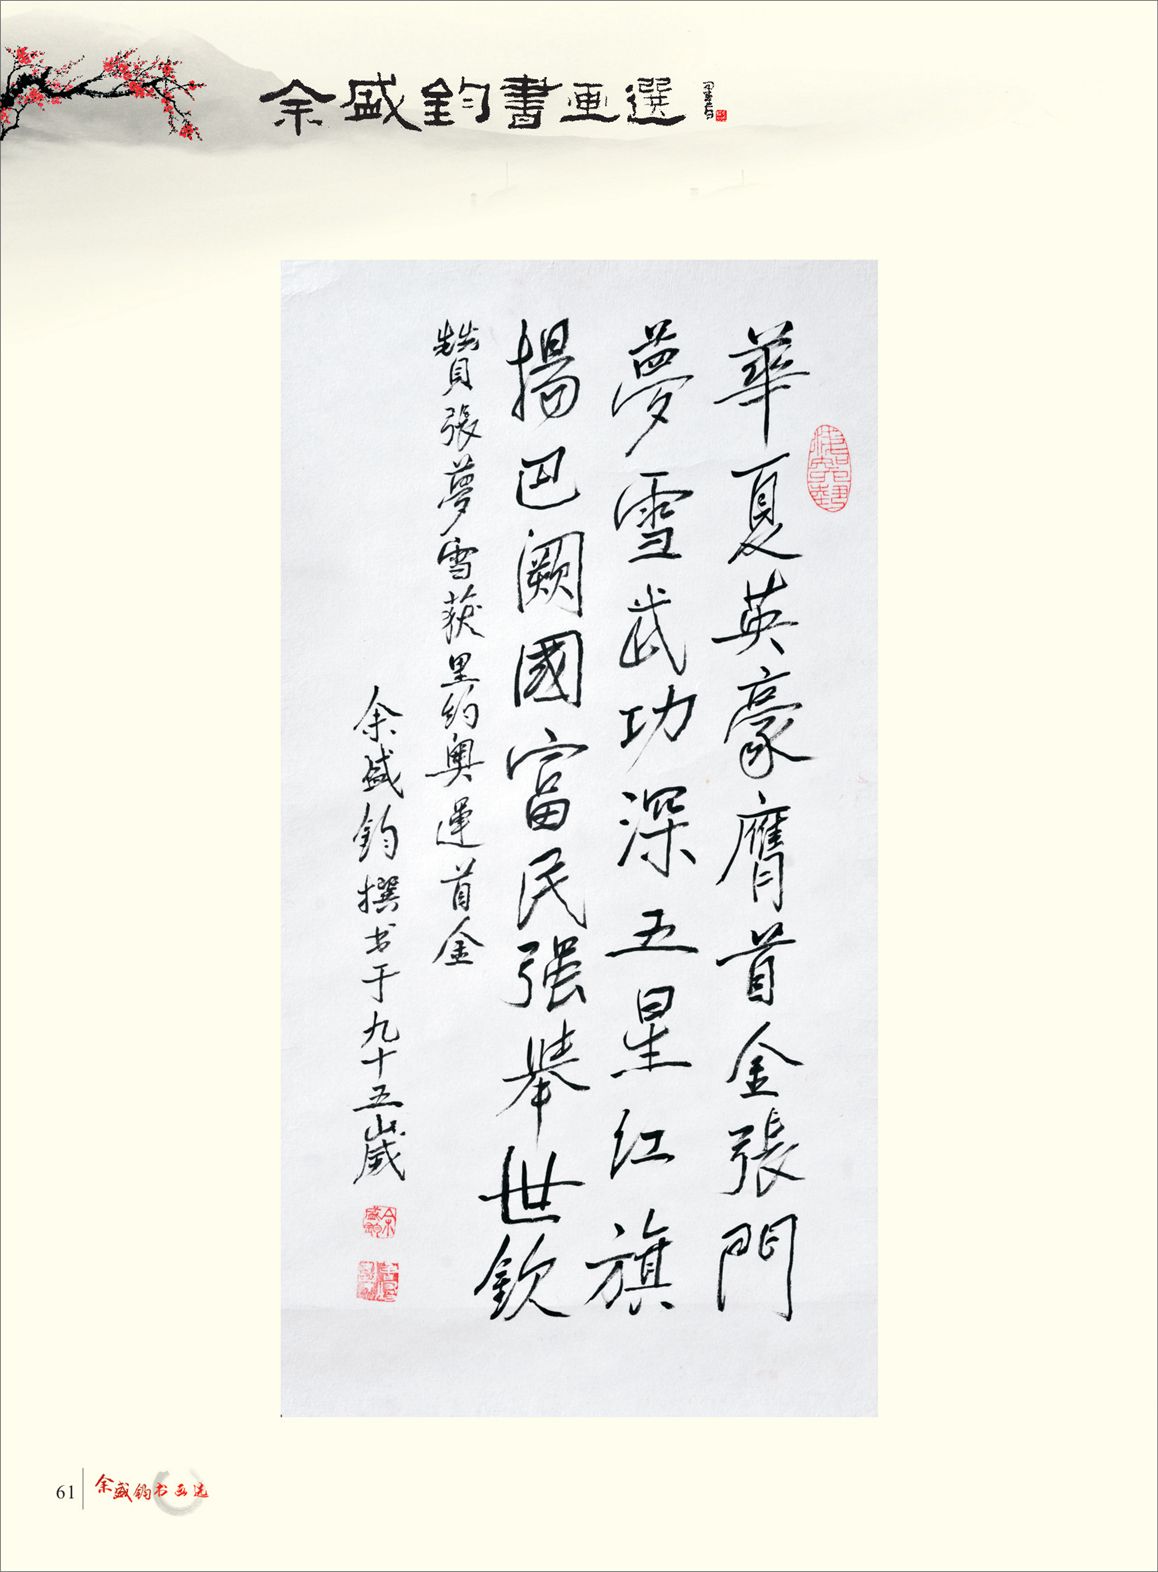 余盛鈞書画選
華夏英豪膺首金張門
夢雪武功深五星红旗
揚巴阙國富民强舉世欽
贊張夢雪获里约奥運首金
余盛鈞撰书于九十五歲
余盛鈞
61
余盛钧书画选